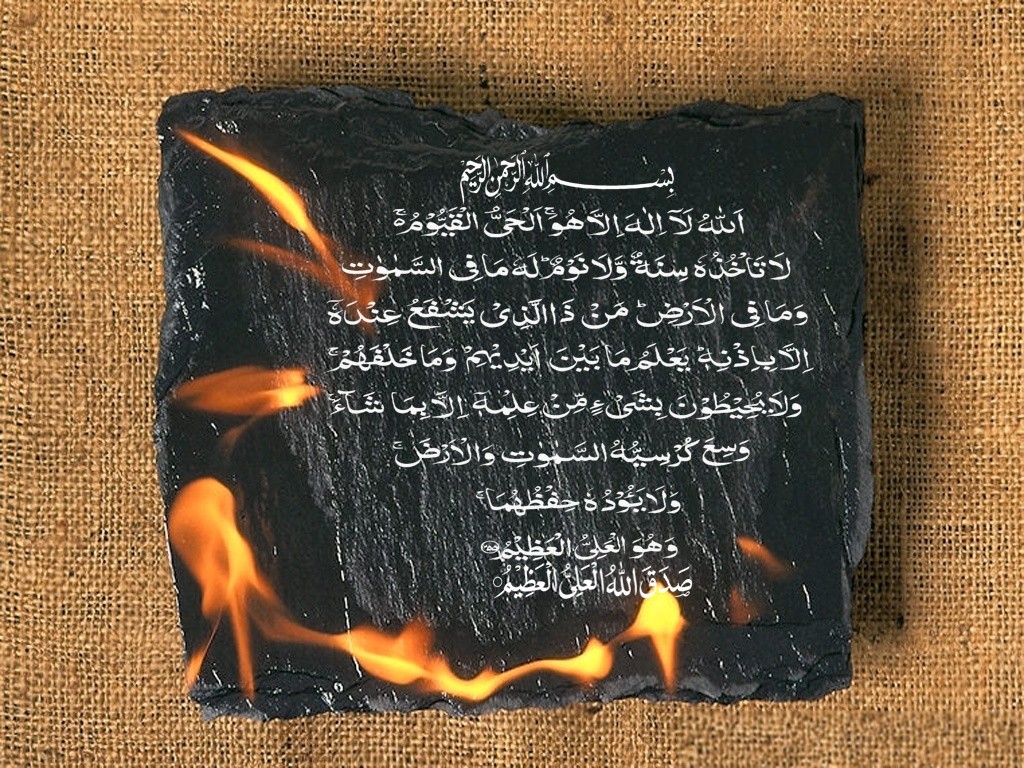 بِسْمِ اللّٰهِ الرَّحْمٰنِ الرَّحِيْمِ
اَللّٰهُ لَآ اِلٰهَ اِلَّا هُوَۚ اَلْحَيُّ الْقَيُّوْمُ ەۚ
لَا تَاْخُذُهٗ سِنَةٌ وَّلَا نَوْمٌؕ لَهٗ مَا فِى السَّمٰوٰتِ
وَمَا فِى الْاَرْضِؕ مَنْ ذَا الَّذِىْ يَشْفَعُ عِنْدَهٗۤ
اِلَّا بِاِذْنِهٖؕ يَعْلَمُ مَا بَيْنَ اَيْدِيْهِمْ وَمَا خَلْفَهُمْۚ
وَلَا يُحِيْطُوْنَ بِشَىْءٍ مِّنْ عِلْمِهٖۤ اِلَّا بِمَا شَآءَۚ
وَسِعَ كُرْسِيُّهُ السَّمٰوٰتِ وَالْاَرْضَۚ
وَلَا يَـُٔوْدُهٗ حِفْظُهُمَاۚ
وَهُوَ الْعَلِىُّ الْعَظِيْمُ ﴿۲۵۵﴾
صَدَقَ اللّٰهُ الْعَلِىُّ الْعَظِيْمُ